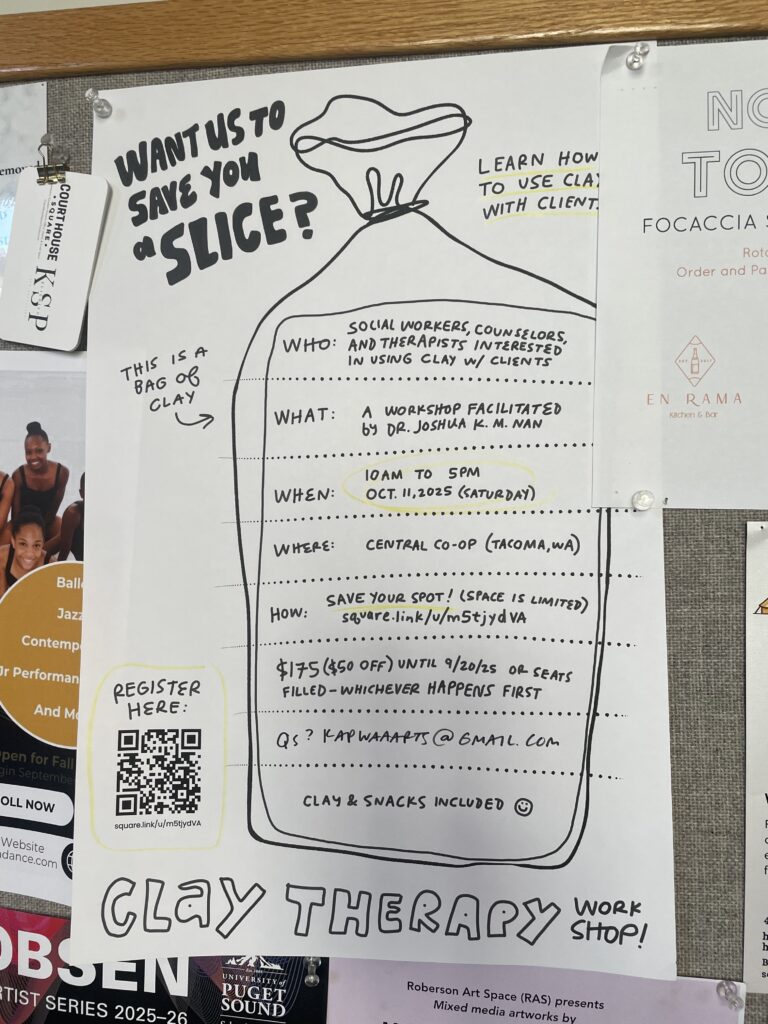 WANT US TO
SAVE YOU
a SLICE?
LEARN HOW
TO USE CLAY
WITH CLIENT
THIS IS A
BAG of
CLAY
WHO: SOCIAL WORKERS, COUNSELORS,
AND THERAPISTS INTERESTED
IN USING CLAY W/ CLIENTS
WHAT: A WORKSHOP FACILITATED
by DR. JOSHUA K. M. NAN
WHEN: 10AM TO 5PM
OCT. 11, 2025 (SATURDAY)
WHERE: CENTRAL CO-OP (TACOMA, WA)
HOW: SAVE YOUR SPOT! (SPACE IS LIMITED)
square.link/u/m5tjydVA
$175 ($50 OFF) UNTIL 9/20/25 OR SEATS
FILLED - WHICHEVER HAPPENS FIRST
Qs? KAPWAAARTS@GMAIL.COM
CLAY & SNACKS INCLUDED
REGISTER
HERE:
square.link/u/m5tjydVA
CLAY THERAPY WORK
SHOP!
COURTHOUSE
SQUARE
KSP
NO
TO
FOCACCIA S
Roto
Order and Pa
EN RAMA
Kitchen & Bar
Ball
Jazz
Contemp
Jr Performan
And Mo
Open for Fall
gin September
OLL NOW
Website
adance.com
OBSEN
RTIST SERIES 2025–26
UNIVERSITY of
PUGET
SOUND
Roberson Art Space (RAS) presents
Mixed media artworks by